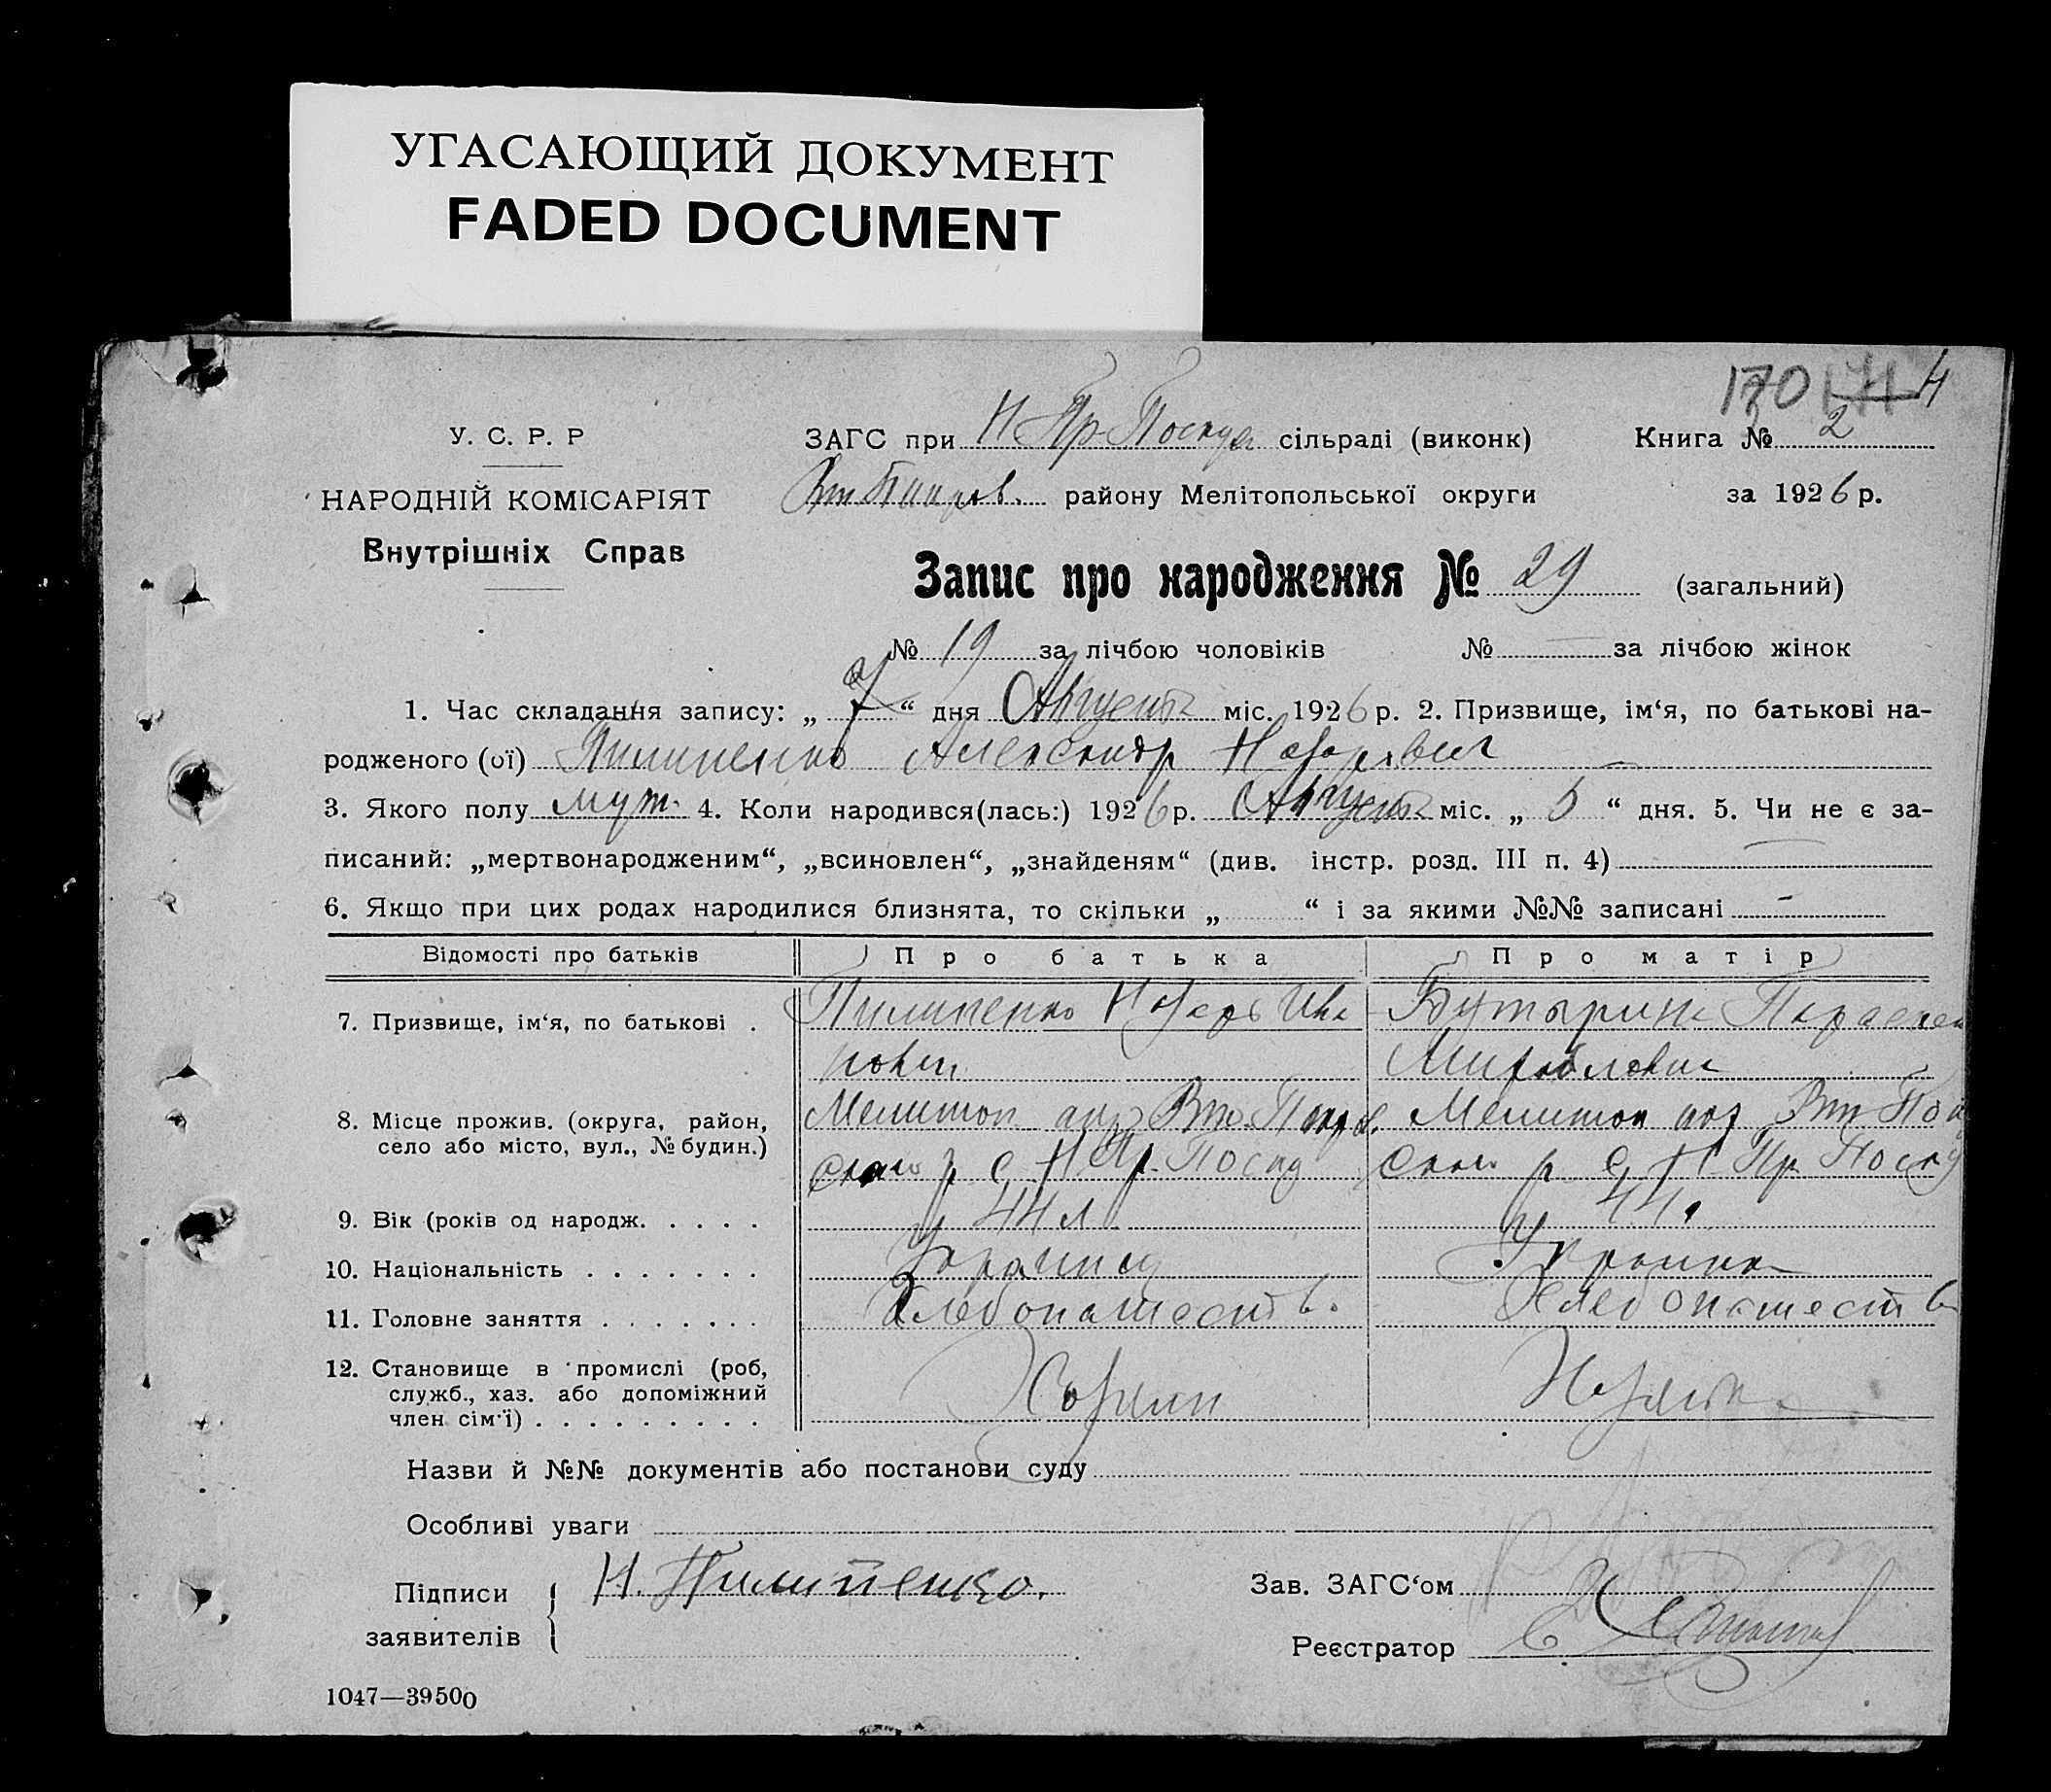 УГАСАЮЩИЙ ДОКУМЕНТ
FADED DOCUMENT
170
У. С. Р. Р
ЗАГС при Н Пр-Посад сільраді (виконк)
Книга № 2
НАРОДНІЙ КОМІСАРІЯТ
району Мелітопольської округи
за 1926 р.
Внутрішніх Справ
Запис про народження № 29 (загальний)
№ 19 за лічбою чоловіків № — за лічбою жінок
1. Час складання запису: „ 7 “ дня Август міс. 1926 р. 2. Призвище, ім‘я, по батькові на-
родженого (ої) Пилипенко Александр Назарович
3. Якого полу муж. 4. Коли народився(лась:) 1926 р. Август міс. „ 5 “ дня. 5. Чи не є за-
писаний: „мертвонародженим“, „всиновлен“, „знайденям“ (див. інстр. розд. III п. 4)
6. Якщо при цих родах народилися близнята, то скільки „ “ і за якими №№ записані -
Відомості про батьків
Про батька
Про матір
7. Призвище, ім‘я, по батькові .
Пилипенко Назарь Ива
нович
Бутырина
8. Місце прожив. (округа, район,
село або місто, вул., № будин.)
Мелитоп окр Вт. Покров.
ском р с Н Пр. Посад
Мелитоп окр Вт Пок
ском р с Н Пр. Посад
9. Вік (років од народж. . . . .
44 л.
44
10. Національність . . . . . . .
Украинец
Украинка
11. Головне заняття . . . . . . .
Хлебопашеств.
Хлебопашеств
12. Становище в промислі (роб,
служб., хаз. або допоміжний
член сім‘ї) . . . . . . . . .
Хозяин
Назви й №№ документів або постанови суду
Особливі уваги
Підписи
заявителів
Н. Пилипенко.
Зав. ЗАГС‘ом
Реєстратор
1047—39500